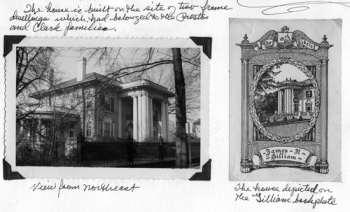 The house is built on the site of two frame
dwellings which had belonged to the Preston
and Clark families.
James - N -
Gilliam
View from Northeast
The house depicted on
the Gilliam bookplate